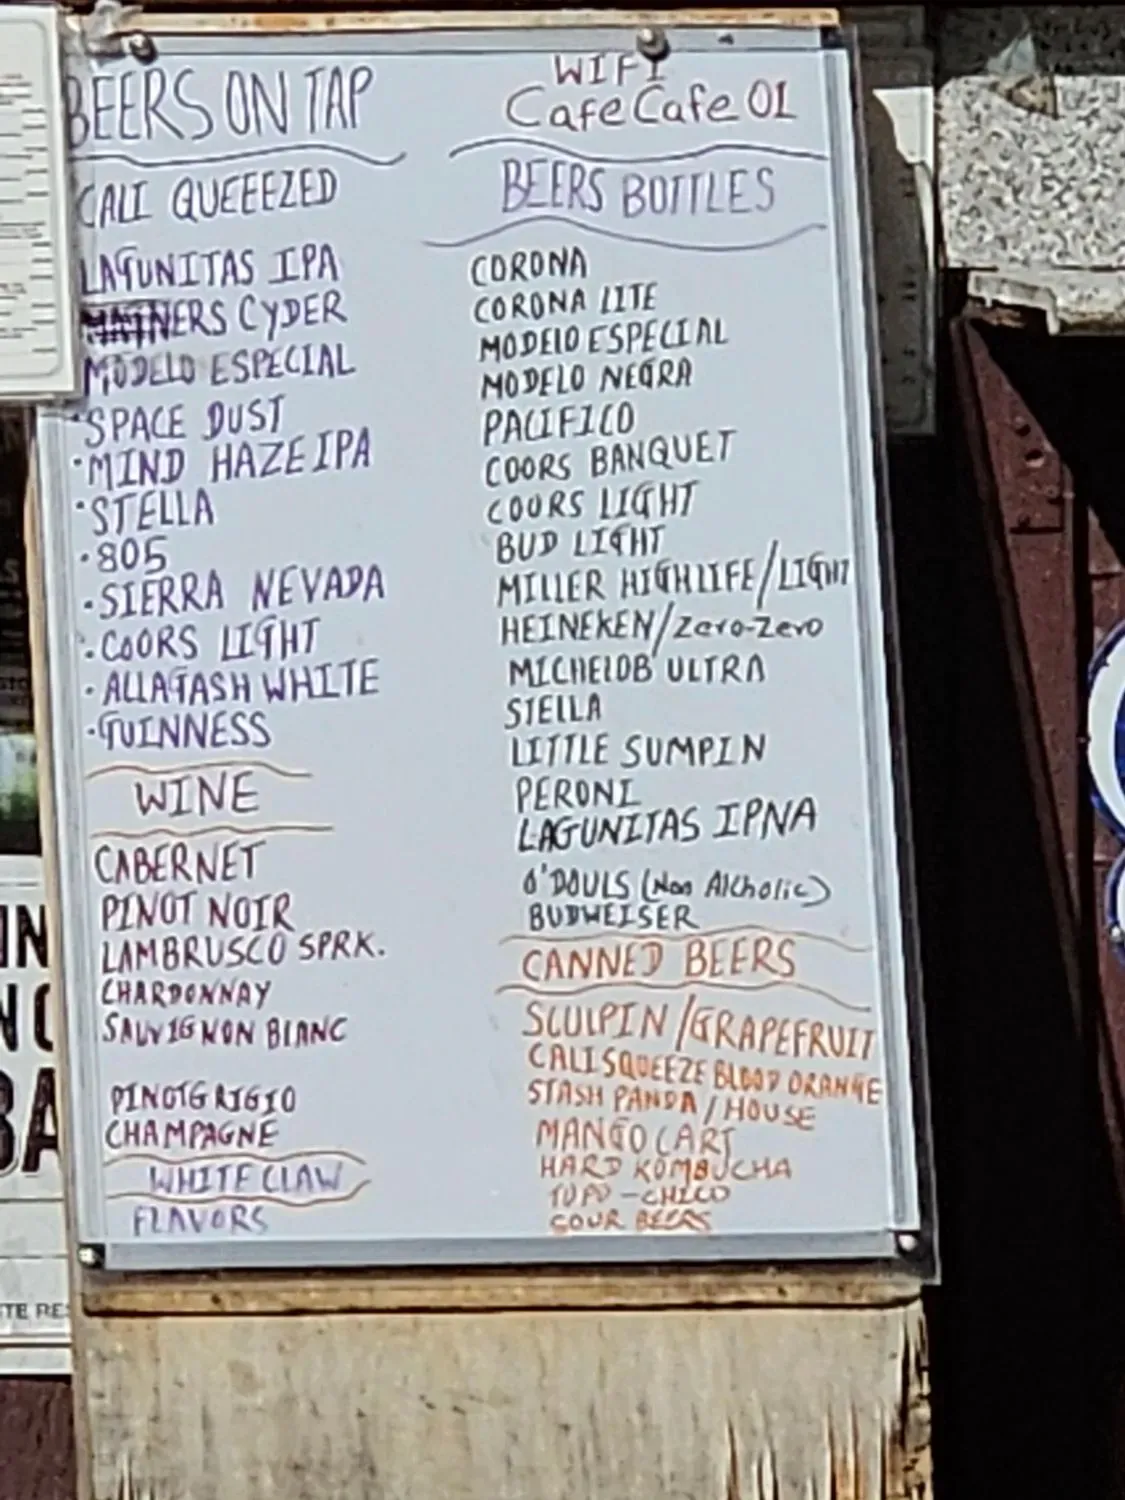 BEERS ON TAP
CALI QUEEEZED
LAGUNITAS IPA
NERS CYDER
MODELO ESPECIAL
·SPACE DUST
·MIND HAZE IPA
·STELLA
·805
·SIERRA NEVADA
·COORS LIGHT
·ALLAGASH WHITE
·GUINNESS
WINE
CABERNET
PINOT NOIR
LAMBRUSCO SPRK.
CHARDONNAY
SAUVIGNON BLANC
PINOT GRIGIO
CHAMPAGNE
WHITE CLAW
FLAVORS
WIFI
CafeCafe01
BEERS BOTTLES
CORONA
CORONA LITE
MODELO ESPECIAL
MODELO NEGRA
PACIFICO
COORS BANQUET
COORS LIGHT
BUD LIGHT
MILLER HIGHLIFE/LIGHT
HEINEKEN/Zero-Zero
MICHELOB ULTRA
STELLA
LITTLE SUMPIN
PERONI
LAGUNITAS IPNA
O'DOULS (Non Alcholic)
BUDWEISER
CANNED BEERS
SCULPIN/GRAPEFRUIT
CALISQUEEZE BLOOD ORANGE
STASH PANDA/HOUSE
MANGO CART
HARD KOMBUCHA
TOPO-CHICO
SOUR BEERS
IN
BA
TE RE